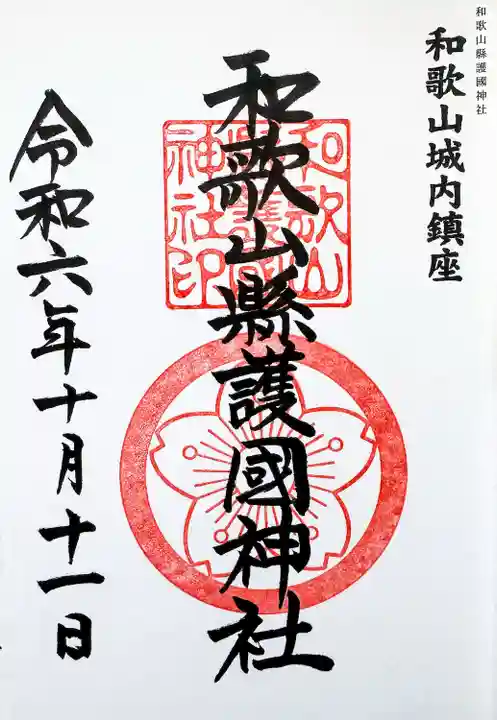 和歌山縣護國神社
和歌山城内鎮座
和歌山縣護國神社
和歌山
縣護國
神社印
令和六年十月十一日